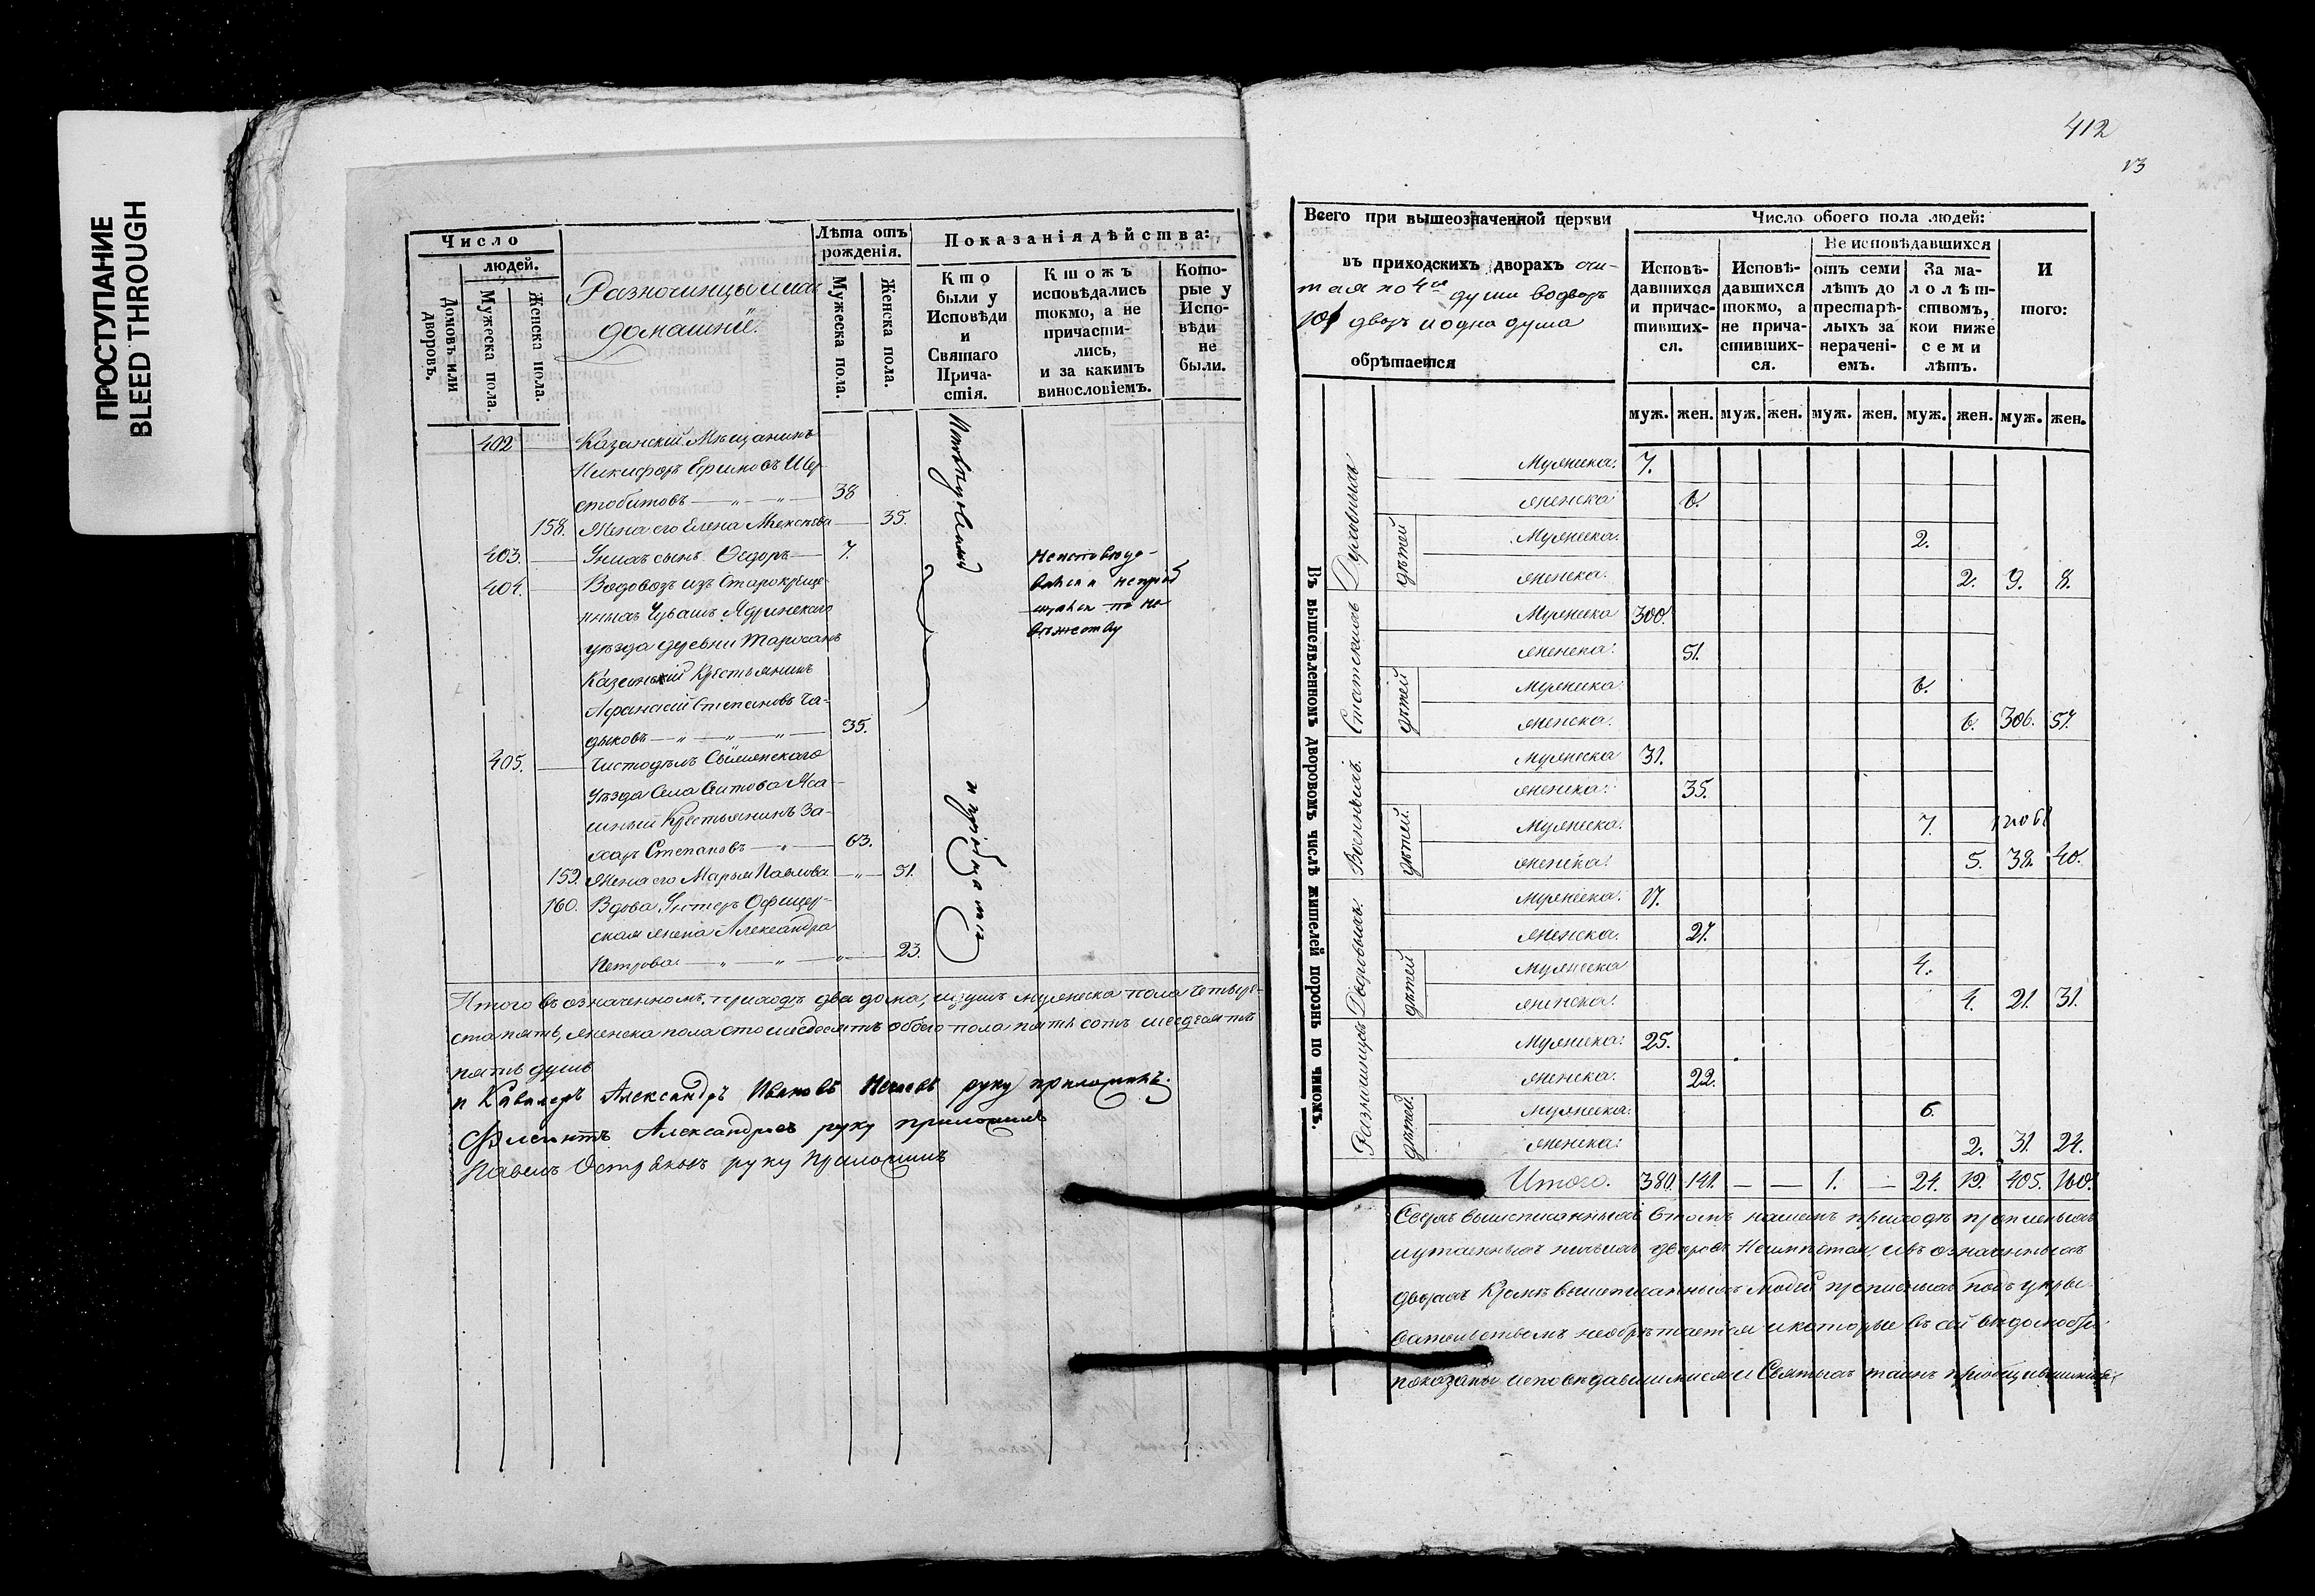 ПРОСТУПАНИЕ
BLEED THROUGH
Число
людей.
Домовъ или дворовъ.
Мужеска пола.
Женска пола.
Разночинцы и ихъ
домашніе.
Лѣта отъ рожденія.
Мужеска пола.
Женска пола.
Показанія дѣйства:
Кто были у Исповѣди и Святаго Причастія.
Ктожъ исповѣдались токмо, а не причастились, и за какимъ винословіемъ.
Которые у Исповѣди не были.
402 Казанскій Мѣщанинъ
Никифоръ Ефимовъ Шер-
стобитовъ 38
158. Жена его Елена Алексѣева 35.
403. У нихъ сынъ Ѳедоръ 7.
404. Водовозъ изъ Старокреще-
нныхъ Чувашъ Ядринскаго
уѣзда деревни
Казенный Крестьянинъ
Афанасій Степановъ Ча-
дыковъ 35.
405. Чистодѣлъ
Уѣзда Села Ситова Яса-
шный Крестьянинъ За-
харъ Степановъ 63.
159. Жена его Марья Павлова 51.
160. Вдова Унтеръ Офицер-
ская жена Александра
Петрова 23.
Исповѣдовались
и пріобщались
Неисповѣдо-
вался и непріоб
щался по не
вѣжеству
Итого въ означенномъ приходѣ два дома, и душъ мужеска пола четыре-
ста пять, женска пола сто шесдесятъ обоего пола пять сотъ шесдесятъ
пять душъ
и Кавалеръ Александръ Ивановъ руку приложилъ.
Александровъ руку приложилъ
Павелъ Остряковъ руку приложилъ
412
13
Всего при вышеозначенной церкви
въ приходскихъ дворахъ счи-
тая по 4ре души во дворъ
101 дворъ и одна душа
обрѣтается
Число обоего пола людей:
Исповѣдавшихся и причастившихся.
Исповѣдавшихся токмо, а не причастившихся.
Не исповѣдавшихся
отъ семи лѣтъ до престарѣлыхъ за нераченіемъ.
За малолѣтствомъ, кои ниже семи лѣтъ.
Итого:
муж. жен. муж. жен. муж. жен. муж. жен. муж. жен.
Въ вышеявленномъ дворовомъ числѣ жителей порознь по чиномъ.
Духовныхъ
Мужеска. 7.
женска 6.
дѣтей
Мужеска. 2.
женска. 2. 9. 8.
Статскихъ
Мужеска 300.
женска. 51.
дѣтей
Мужеска 6.
женска. 6. 306. 57.
Военныхъ.
Мужеска 31.
женска. 35.
дѣтей.
Мужеска. 7.
женска. 5. 38 40.
Дворовыхъ.
Мужеска. 17.
женска. 27.
дѣтей
Мужеска 4.
женска. 4. 21. 31.
Разночинцевъ
Мужеска. 25.
женска. 22.
дѣтей.
Мужеска. 5.
женска. 2. 31. 24.
Итого. 380. 141. — — 1. — 24. 19. 405. 160.
Сверхъ вышеписанныхъ въ томъ нашемъ приходѣ прописныхъ
и утаенныхъ никакихъ дворовъ неимѣется, и въ означенныхъ
дворахъ Кромѣ вышеписанныхъ людей прописныхъ подъ укры-
вательствомъ необрѣтается и которые въ сей вѣдомости
показаны исповѣдавшимися и Святыхъ таинъ пріобщившимися